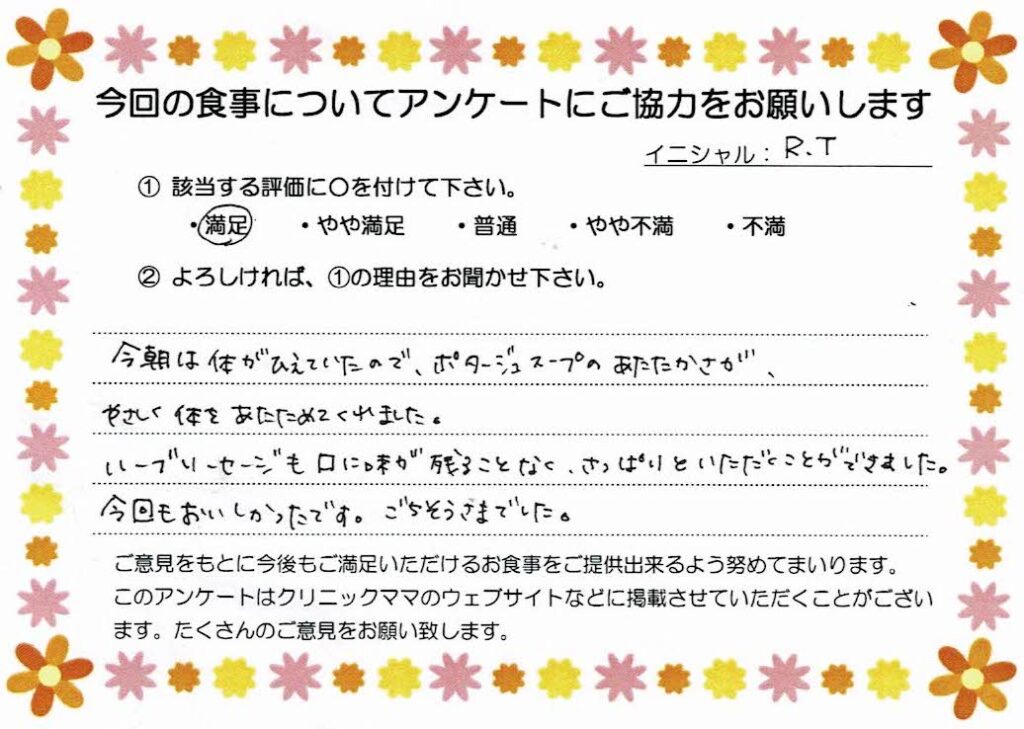 今回の食事についてアンケートにご協力をお願いします
イニシャル：R.T
① 該当する評価に〇を付けて下さい。
・満足 ・やや満足 ・普通 ・やや不満 ・不満
② よろしければ、①の理由をお聞かせ下さい。
今朝は体がひえていたので、ポタージュスープのあたたかさが、
やさしく体をあたためてくれました。
ハーブソーセージも口に味が残ることなく、さっぱりといただくことができました。
今回もおいしかったです。ごちそうさまでした。
ご意見をもとに今後もご満足いただけるお食事をご提供出来るよう努めてまいります。
このアンケートはクリニックママのウェブサイトなどに掲載させていただくことがござい
ます。たくさんのご意見をお願い致します。